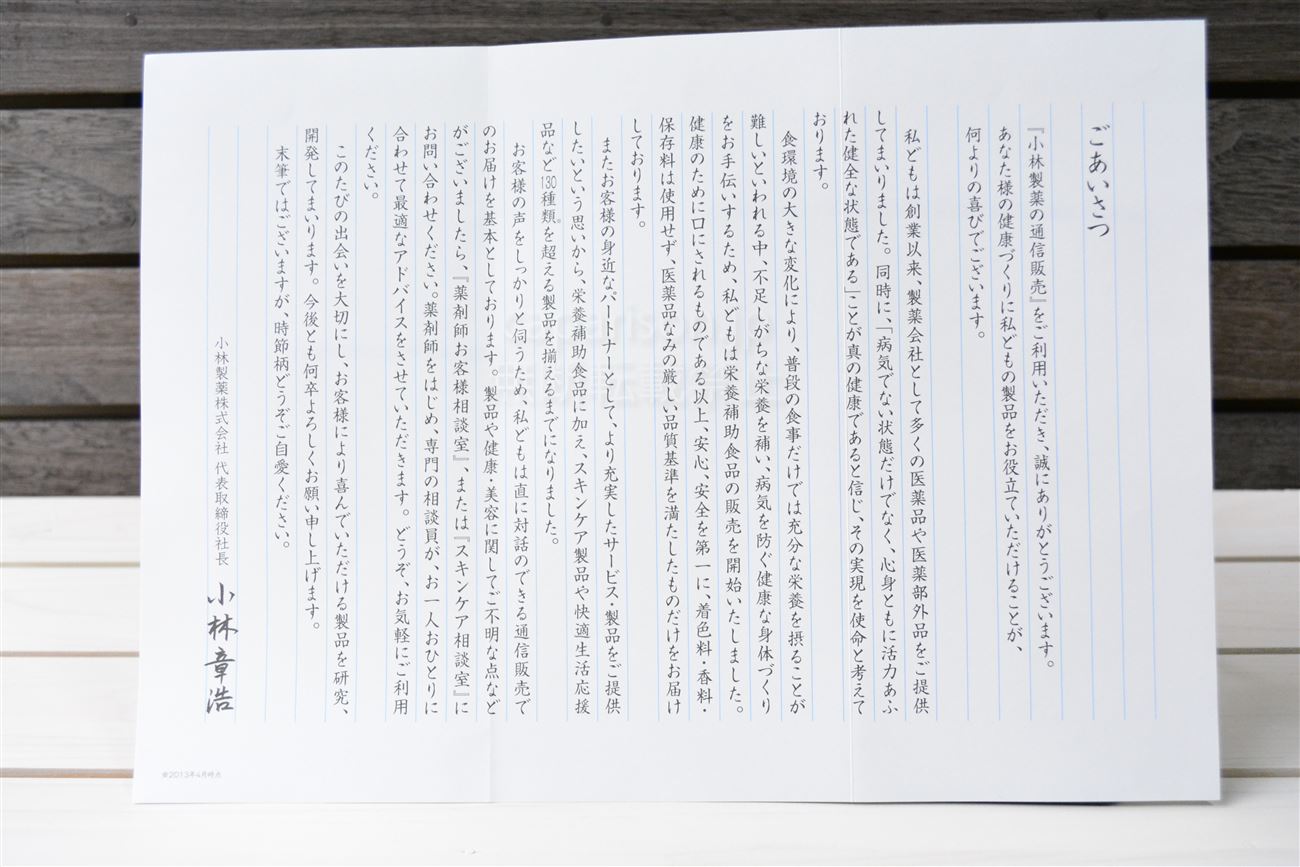 ごあいさつ
『小林製薬の通信販売』をご利用いただき、誠にありがとうございます。
あなた様の健康づくりに私どもの製品をお役立ていただけることが、
何よりの喜びでございます。
私どもは創業以来、製薬会社として多くの医薬品や医薬部外品をご提供
してまいりました。同時に、「病気でない状態だけでなく、心身ともに活力あふ
れた健全な状態である」ことが真の健康であると信じ、その実現を使命と考えて
おります。
食環境の大きな変化により、普段の食事だけでは充分な栄養を摂ることが
難しいといわれる中、不足しがちな栄養を補い、病気を防ぐ健康な身体づくり
をお手伝いするため、私どもは栄養補助食品の販売を開始いたしました。
健康のために口にされるものである以上、安心、安全を第一に、着色料・香料・
保存料は使用せず、医薬品なみの厳しい品質基準を満たしたものだけをお届け
しております。
またお客様の身近なパートナーとして、より充実したサービス・製品をご提供
したいという思いから、栄養補助食品に加え、スキンケア製品や快適生活応援
品など130種類※を超える製品を揃えるまでになりました。
お客様の声をしっかりと伺うため、私どもは直に対話のできる通信販売で
のお届けを基本としております。製品や健康・美容に関してご不明な点など
がございましたら、『薬剤師お客様相談室』、または『スキンケア相談室』に
お問い合わせください。薬剤師をはじめ、専門の相談員が、お一人おひとりに
合わせて最適なアドバイスをさせていただきます。どうぞ、お気軽にご利用
ください。
このたびの出会いを大切にし、お客様により喜んでいただける製品を研究、
開発してまいります。今後とも何卒よろしくお願い申し上げます。
末筆ではございますが、時節柄どうぞご自愛ください。
小林製薬株式会社 代表取締役社長 小林章浩
※2013年4月時点